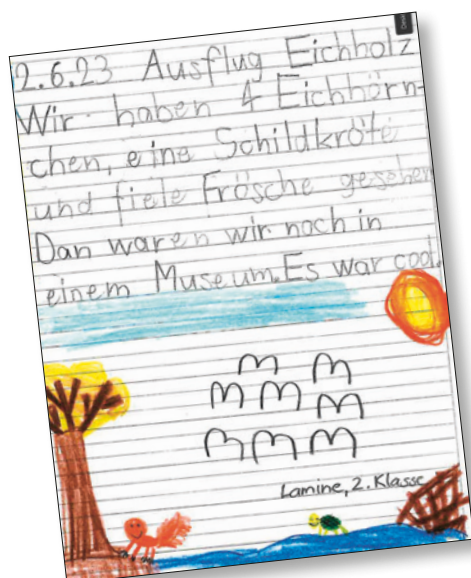 2.6.23 Ausflug Eichholz
Wir haben 4 Eichhörn-
chen, eine Schildkröte
und fiele Frösche gesehen
Dan waren wir noch in
einem Museum. Es war cool.
Lamine, 2. Klasse